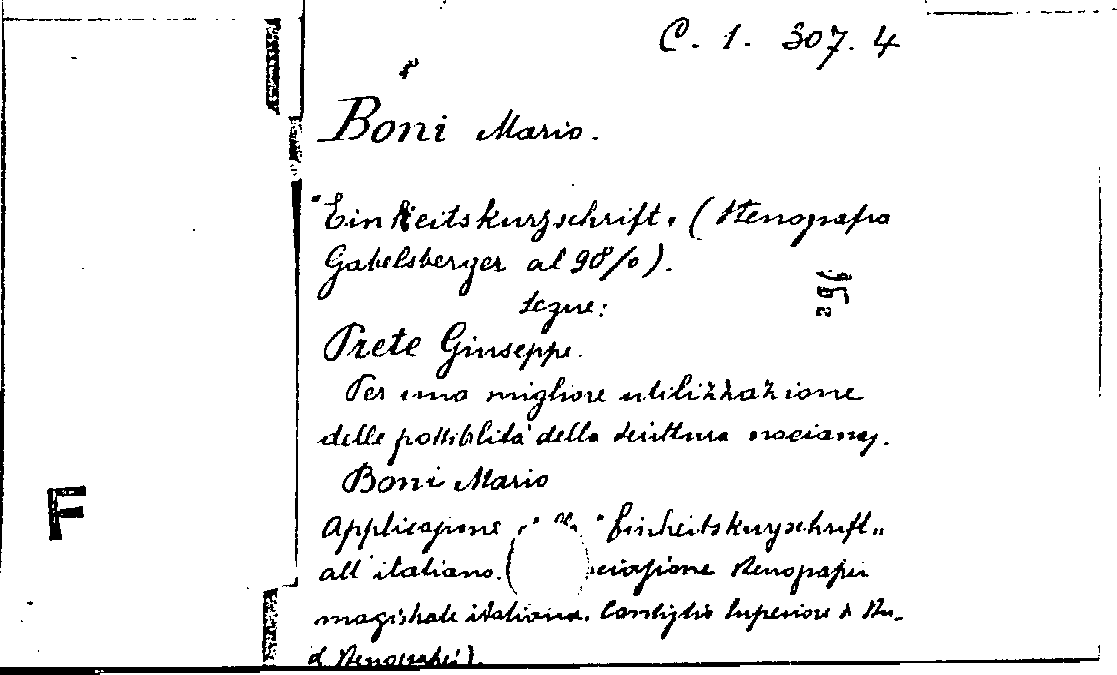 C. 1. 307. 4
Boni Mario.
"Einheitskurzschrift" (Stenografia
Gabelsberger al 98%).
Segue:
Prete Giuseppe.
Per una migliore utilizzazione
delle possiblità della scrittura nociana.
Boni Mario
F
Applicazione "Einheitskurzschrift"
all'italiano. stenografi
magistrale italiana. Consiglio Superiore